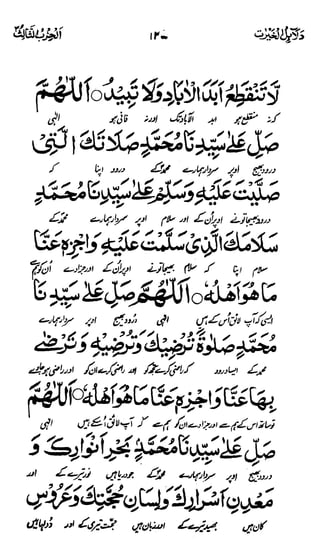 دلائل الخیرت ۱۲۰ الحزب الثالث
لَا تَنْقَطِعُ اَبَدَ الْاٰبَادِ وَلَا تَبِيْدُ ○ اَللّٰهُمَّ
کہ نہ منقطع ہو ابد الآباد تک اور فانی ہو الٰہی
صَلِّ عَلٰى سَيِّدِنَا مُحَمَّدٍ صَلَاتَكَ الَّتِىْ
درود بھیج اوپر سردار ہمارے محمد کے درود اپنا کہ
صَلَّيْتَ عَلَيْهِ وَسَلِّمْ عَلٰى سَيِّدِنَا مُحَمَّدٍ
درود بھیجا تونے اوپر اُن کے اور سلام اوپر سردار ہمارے محمد کے
سَلَامَكَ الَّذِىْ سَلَّمْتَ عَلَيْهِ وَاجْزِهٖ عَنَّا
سلام اپنا کہ سلام بھیجا تونے اوپر اُن کے اور جزا دے اُن کو ہم سے
مَا هُوَ اَهْلُهٗ ○ اَللّٰهُمَّ صَلِّ عَلٰى سَيِّدِنَا
کہ آپ لائق اُس کے ہیں الٰہی درود بھیج اوپر سردار ہمارے
مُحَمَّدٍ صَلٰوةً تُرْضِيْكَ وَتُرْضِيْهِ وَتَرْضٰى
محمد کے ایسا درود کہ راضی کرے تجھ کو اور راضی کرے اُن کو اور راضی ہو
بِهَا عَنَّا وَاجْزِهٖ عَنَّا مَا هُوَ اَهْلُهٗ ○ اَللّٰهُمَّ
تو ساتھ اُس کے ہم سے اور جزا دے اُن کو ہم سے کہ آپ لائق اُسکے ہیں الٰہی
صَلِّ عَلٰى سَيِّدِنَا مُحَمَّدٍ بَحْرِ اَنْوَارِكَ وَ
درود بھیج اوپر سردار ہمارے محمد کے جو دریا ہیں نور تیرے کے اور
مَعْدِنِ اَسْرَارِكَ وَلِسَانِ حُجَّتِكَ وَعَرُوْسِ
کان ہیں بھید تیرے کے اور زبان ہیں حجت تیری کے اور دولہا ہیں